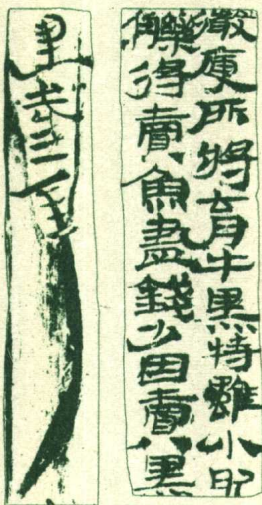 微庚所將育牛黑特雖小肥
觻得賣魚盡錢少因賣黑
建武三年